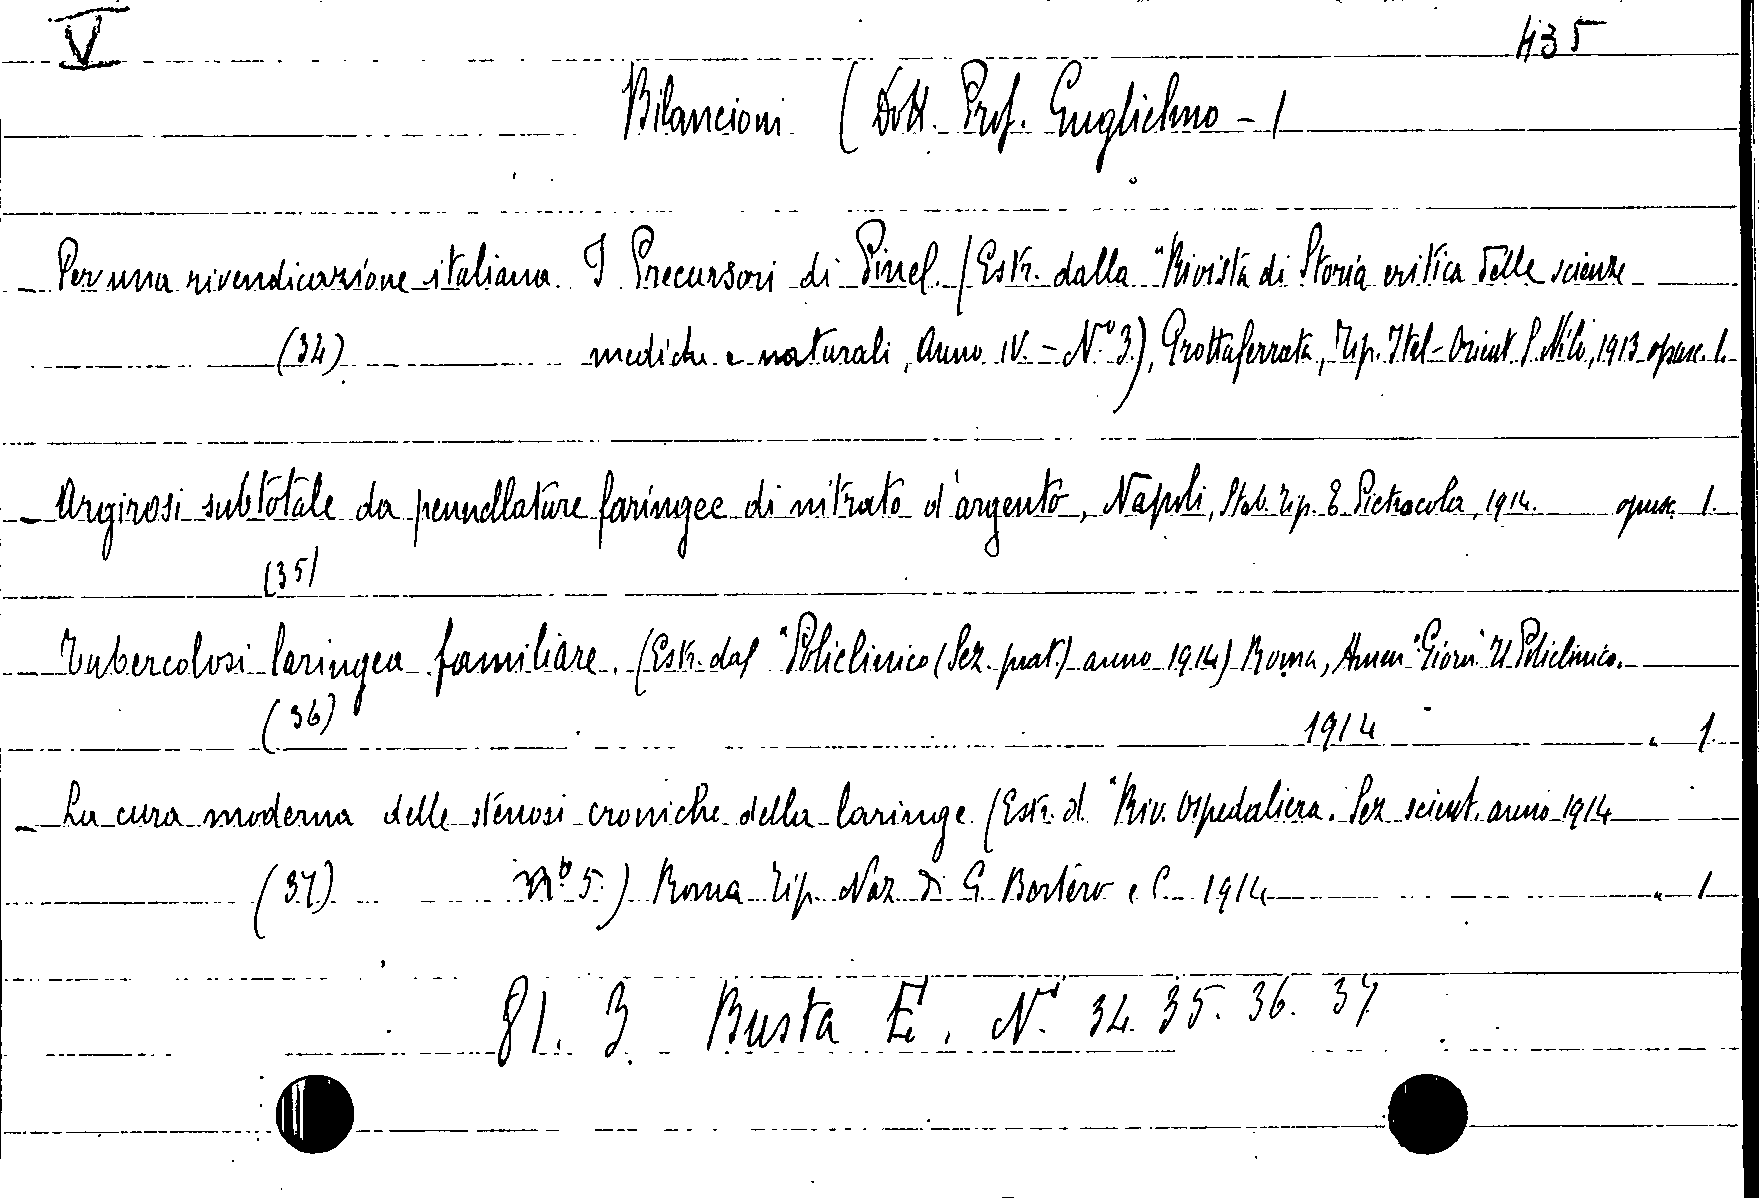 V 435
Bilancioni (Dott. Prof. Guglielmo - )
- Per una rivendicazione italiana. I Precursori di Pinel. (Estr. dalla "Rivista di Storia critica delle scienze
(34) mediche e naturali, Anno IV. - N.° 3.), Grottaferrata, Tip. Ital-Orient. S. Nilo, 1913 opusc. 1.
- Argirosi subtotale da pennellature faringee di nitrato d'argento, Napoli, Stab. Tip. E. Pietrocola, 1914. opusc. 1.
(35)
- Tubercolosi laringea familiare. (Estr. dal "Policlinico (Sez. prat.) anno 1914) Roma, Amm. Giorn. Il Policlinico.
(36) 1914 " 1.
- La cura moderna delle stenosi croniche della laringe (Estr. d. "Riv. Ospedaliera. Sez scient. anno 1914
(37) N° 5.) Roma Tip. Naz. di G. Bertero e C. 1914 " 1
81. 3. Busta E. N.i 34. 35. 36. 37